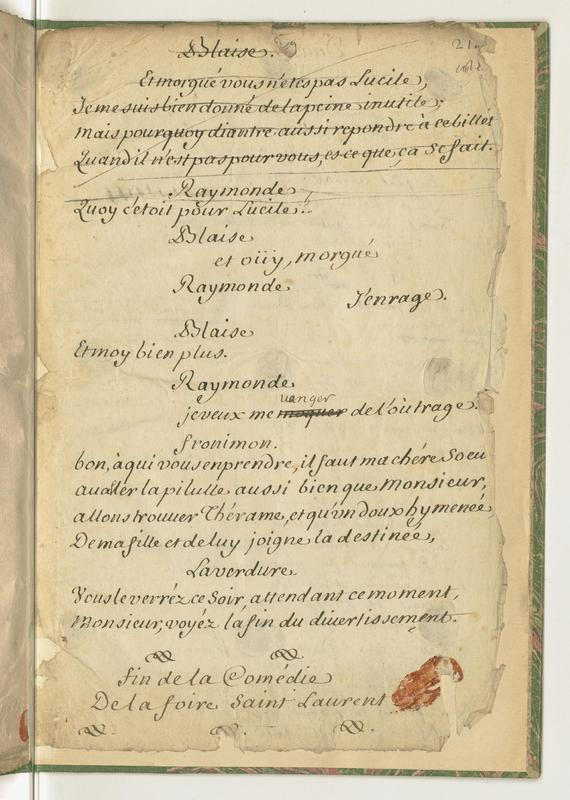 21.
Blaise.
Et morgué vous n'etes pas Lucile,
Je me suis bien donné de la peine inutile;
mais pourquoy diantre aussi repondre à ce billet
Quand il n'est pas pour vous, es-ce que ça se fait.
Raymonde
Quoy c'etoit pour Lucile..
Blaise
et oüy, morgué
Raymonde
J'enrage.
Blaise
Et moy bien plus.
Raymonde
uanger
je veux me moquer de l'outrage.
fronimon.
bon, à qui vous en prendre, il faut ma chére Soeu
aualler la pilulle aussi bien que monsieur,
allons trouuer Thérame, et qu'vn doux hymeneé
De ma fille et de luy joigne la destineé,
Laverdure
Vous le verréz ce Soir, attendant ce moment,
Monsieur, voyéz la fin du diuertissement.
fin de la Comédie
De la foire Saint Laurent